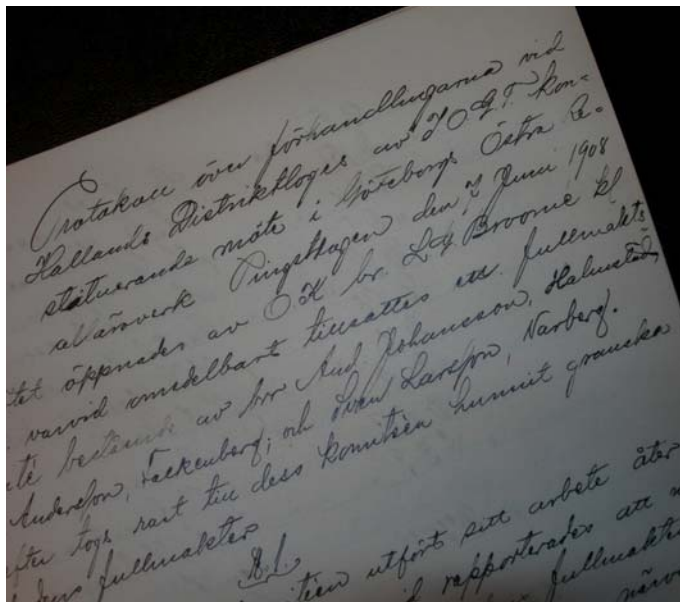 Protokoll över förhandlingarna vid
Hallands Distriktloges av I O G T. kon-
stituerande möte i Göteborgs Östra Re-
allärverk Pingstdagen den 7 Juni 1908
tet öppnades av O K br. L G Broomé kl
varvid omedelbart tillsattes ett fullmakts
té bestående av brr Aud. Johansson, Halmstad,
Andersson, Falkenberg; och Sven Larsson, Varberg.
fter togs rast till dess komitéen hunnit granska
dens fullmakter
§.1.
itéen utfört sitt arbete åter
rapporterades att
fullmakter
närva